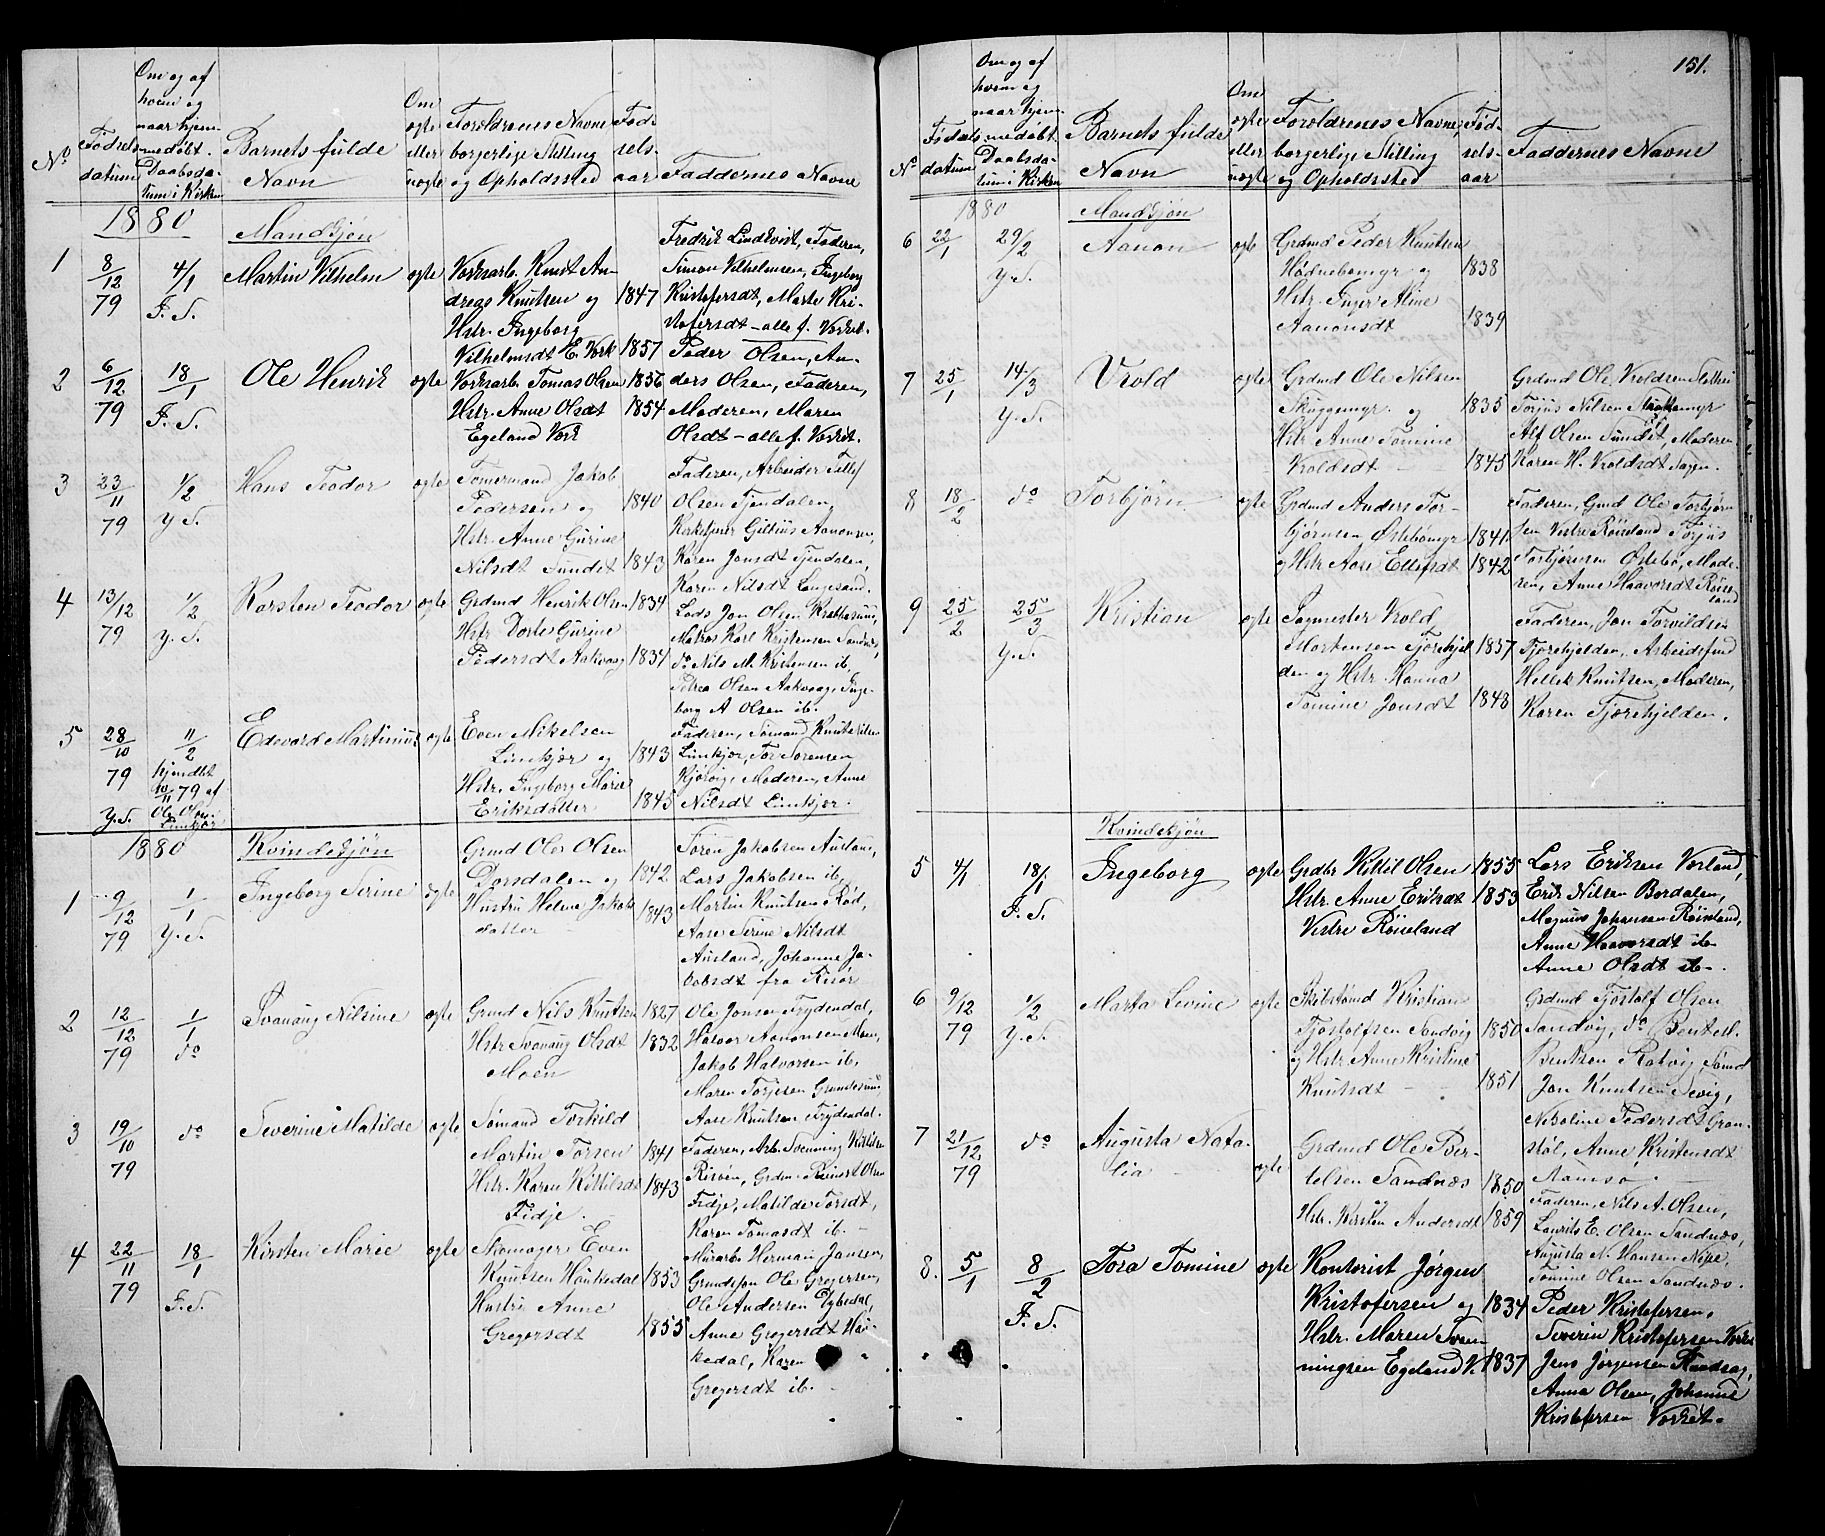 151.
No
Fødsels-
datum
Om og af
hvem og
naar hjem-
medøbt.
Daabsda-
tum i Kirken
Barnets fulde
Navn
Om
ægte
eller
uægte
Forældrenes Navne
borgerlige Stilling
og Opholdssted
Fød-
sels-
aar
Faddernes Navne
1880
Mandkjøn
1
8/12
79
4/1
F. S.
Martin Vilhelm
ægte
Verksarb. Knut An-
dreas Knutsen og
Hstr. Ingeborg
Vilhelmsdt E. Verk
1847
1857
Fredrik Lindkvist, Faderen,
Simon Vilhelmsen, Ingeborg
Kristofersdt, Marte Kri-
stofersdt – alle f. Verket.
2
6/12
79
18/1
F. S.
Ole Henrik
ægte
Verksarb. Tomas Olsen
Hstr. Anne Olsdt
Egeland Verk
1856
1854
Peder Olsen, An-
ders Olsen, Faderen,
Moderen, Maren
Olsdt – alle f. Verket.
3
23/11
79
1/2
y. S.
Hans Teodor
ægte
Tømermand Jakob
Pedersen og
Hstr. Anne Gurine
Nilsdt Sundet
1840
1843
Faderen, Arbeider Tellef
Olsen Tjendalen,
Kirketjener Aanonsen,
Karen Jonsdt Tjendalen,
Karen Nilsdt Langesand.
4
13/12
79
1/2
y. S.
Karsten Teodor
ægte
Grdmd Henrik Olsen
Hstr Dorte Gurine
Pedersdt Aakvaag
1834
1834
Lods Jon Olsen
Matros Karl Kristensen Sandnæs,
do Nils M. Kristensen ib,
Petrea Olsen Aakvaag, Inge-
borg A Olsen ib.
5
28/10
79
y. S.
11/2
hjemdøbt
10/11 79 af
Ole Olsen
Limkjær
Edevard Martinius
ægte
Even Mikelsen
Limkjær og
Hstr. Ingeborg Marie
Eriksdatter
1843
1845
Faderen, Sømand Knut Nilsen
Limkjær, Tor Sørensen
Kjørvig, Moderen, Anne
Nilsdt Limkjær.
1880
Kvindekjøn
1
9/12
79
1/1
y. S.
Ingeborg Serine
ægte
Grmd Ole Olsen
Dorsdalen og
Hustru Helene Jakobs
datter
1842
1843
Søren Jakobsen Ausland,
Lars Jakobsen ib,
Martin Knutsen Rød,
Aase Serine Nilsdt
Ausland, Johanne Ja-
kobsdt fra Risør
2
12/12
79
1/1
do
Svanaug Nilsine
ægte
Grmd Nils Knutsen
Hstr Svanaug Olsdt
Moen
1827
1832
Ole Jonsen Frydendal,
Halvor Aanonsen Moen,
Jakob Halvorsen ib.
Maren Torjesen Grundesund
Aase Knutsen Frydendal.
3
19/10
79
do
Severine Matilde
ægte
Sømand Torkild
Martin Torsen
Hstr. Karen Kittilsdt
Fidje.
1841
1843
Faderen, Arb. Svenning Kittilsen
Risøen, Grdm. Reinert Olsen
Fidje, Matilde Torsdt,
Karen Tomasdt ib –
4
22/11
79
18/1
F. S.
Kirsten Marie
ægte
Skomager Even
Knutsen Haukedal
Hustru Anne
Gregersdt
1853
1855
Murarb. Herman Jansen,
Grundsjon Ole Gregersen,
Ole Andersen Dybedal,
Anne Gregersdt Hau-
kedal, Karen
Gregersdt ib. –
No
Fødsels
datum
Om og af
hvem og
naar hjem-
medøbt.
Daabsda-
tum i Kirken
Barnets fulde
Navn
Om
ægte
eller
uægte
Forældrenes Navne,
borgerlige Stilling
og Opholdssted
Fød-
sels-
aar
Faddernes Navne
1880
Mandkjøn
6
22/1
29/2
y. S.
Aanon
ægte
Grdmd Peder Knutsen
Hødnebømyr og
Hstr. Inger Aline
Aanonsdt
1838
1839
7
25/1
14/3
y. S.
Vrold
ægte
Grdmd Ole Nilsen
Skuggemyr og
Hstr Anne Tomine
Vroldsdt
1835
1845
Grdmd Ole Vroldsen
Torjus Nilsen
Alf Olsen Sundet, Moderen
Karen H. Vroldsdt
8
18/2
do
Torbjørn
ægte
Grdmd Anders Tor-
bjørnsen Østebømyr
og Hstr Aase Ellefsdt
1841
1842
Faderen, Gmd Ole Torbjørn
sen Vestre Røisland Torjus
Torbjørnsen Østebø, Mode-
ren, Anne Haavorsdt Røis-
land
9
25/2
25/3
y. S.
Kristian
ægte
Sagmester Vrold
Mortensen Tjørehjel
den og Hstr. Hanna
Tomine Jonsdt
1837
1848
Faderen, Jon Torvildsen
Tjørehjelden, Arbeidsfmd
Hellek Knutsen, Moderen,
Karen Tjørehjelden.
Kvindekjøn
5
4/1
18/1
F. S.
Ingeborg
ægte
Grdbr Kittil Olsen
Hstr. Anne Eriksdt
Vestre Røisland
1855
1853
Lars Eriksen Vorland,
Erik Nilsen Bordalen,
Magnus Johansen Røisland,
Anne Haavorsdt ib –
Anne Olsdt ib –.
6
9/12
79
1/2
y. S.
Marta Levine
ægte
Skibstømd Kristian
Tjostolfsen Sandvig
og Hstr Anne Kristine
Knutsdt
1850
1851
Grdmd Tjostolf Olsen
Sandvig, do Bentel
Bentsen Rotvig, Sømd
Jon Knutsen Sevig,
Nikoline Pedersdt Gron-
støl, Anne Kristensdt
Aamsø. –
7
21/12
79
do
Augusta Nata-
lia
ægte
Grdmd Ole Ber-
telsen Sandnæs
og
Hstr. Kirsten Andersdt
1850
1859
Faderen, Nils A. Olsen,
Laurits E. Olsen Sandnæs,
Augusta N. Hansen Nipe,
Tomine Olsen Sandnæs.
8.
5/1
8/2
F. S.
Tora Tomine
ægte
Kontorist Jørgen
Kristofersen og
Hstr. Maren Sven-
ningsen Egeland V.
1834
1837
Peder Kristofersen,
Severin Kristofersen Verket
Jens Jørgensen
Anna Olsen, Johanne
Kristofersen Verket –